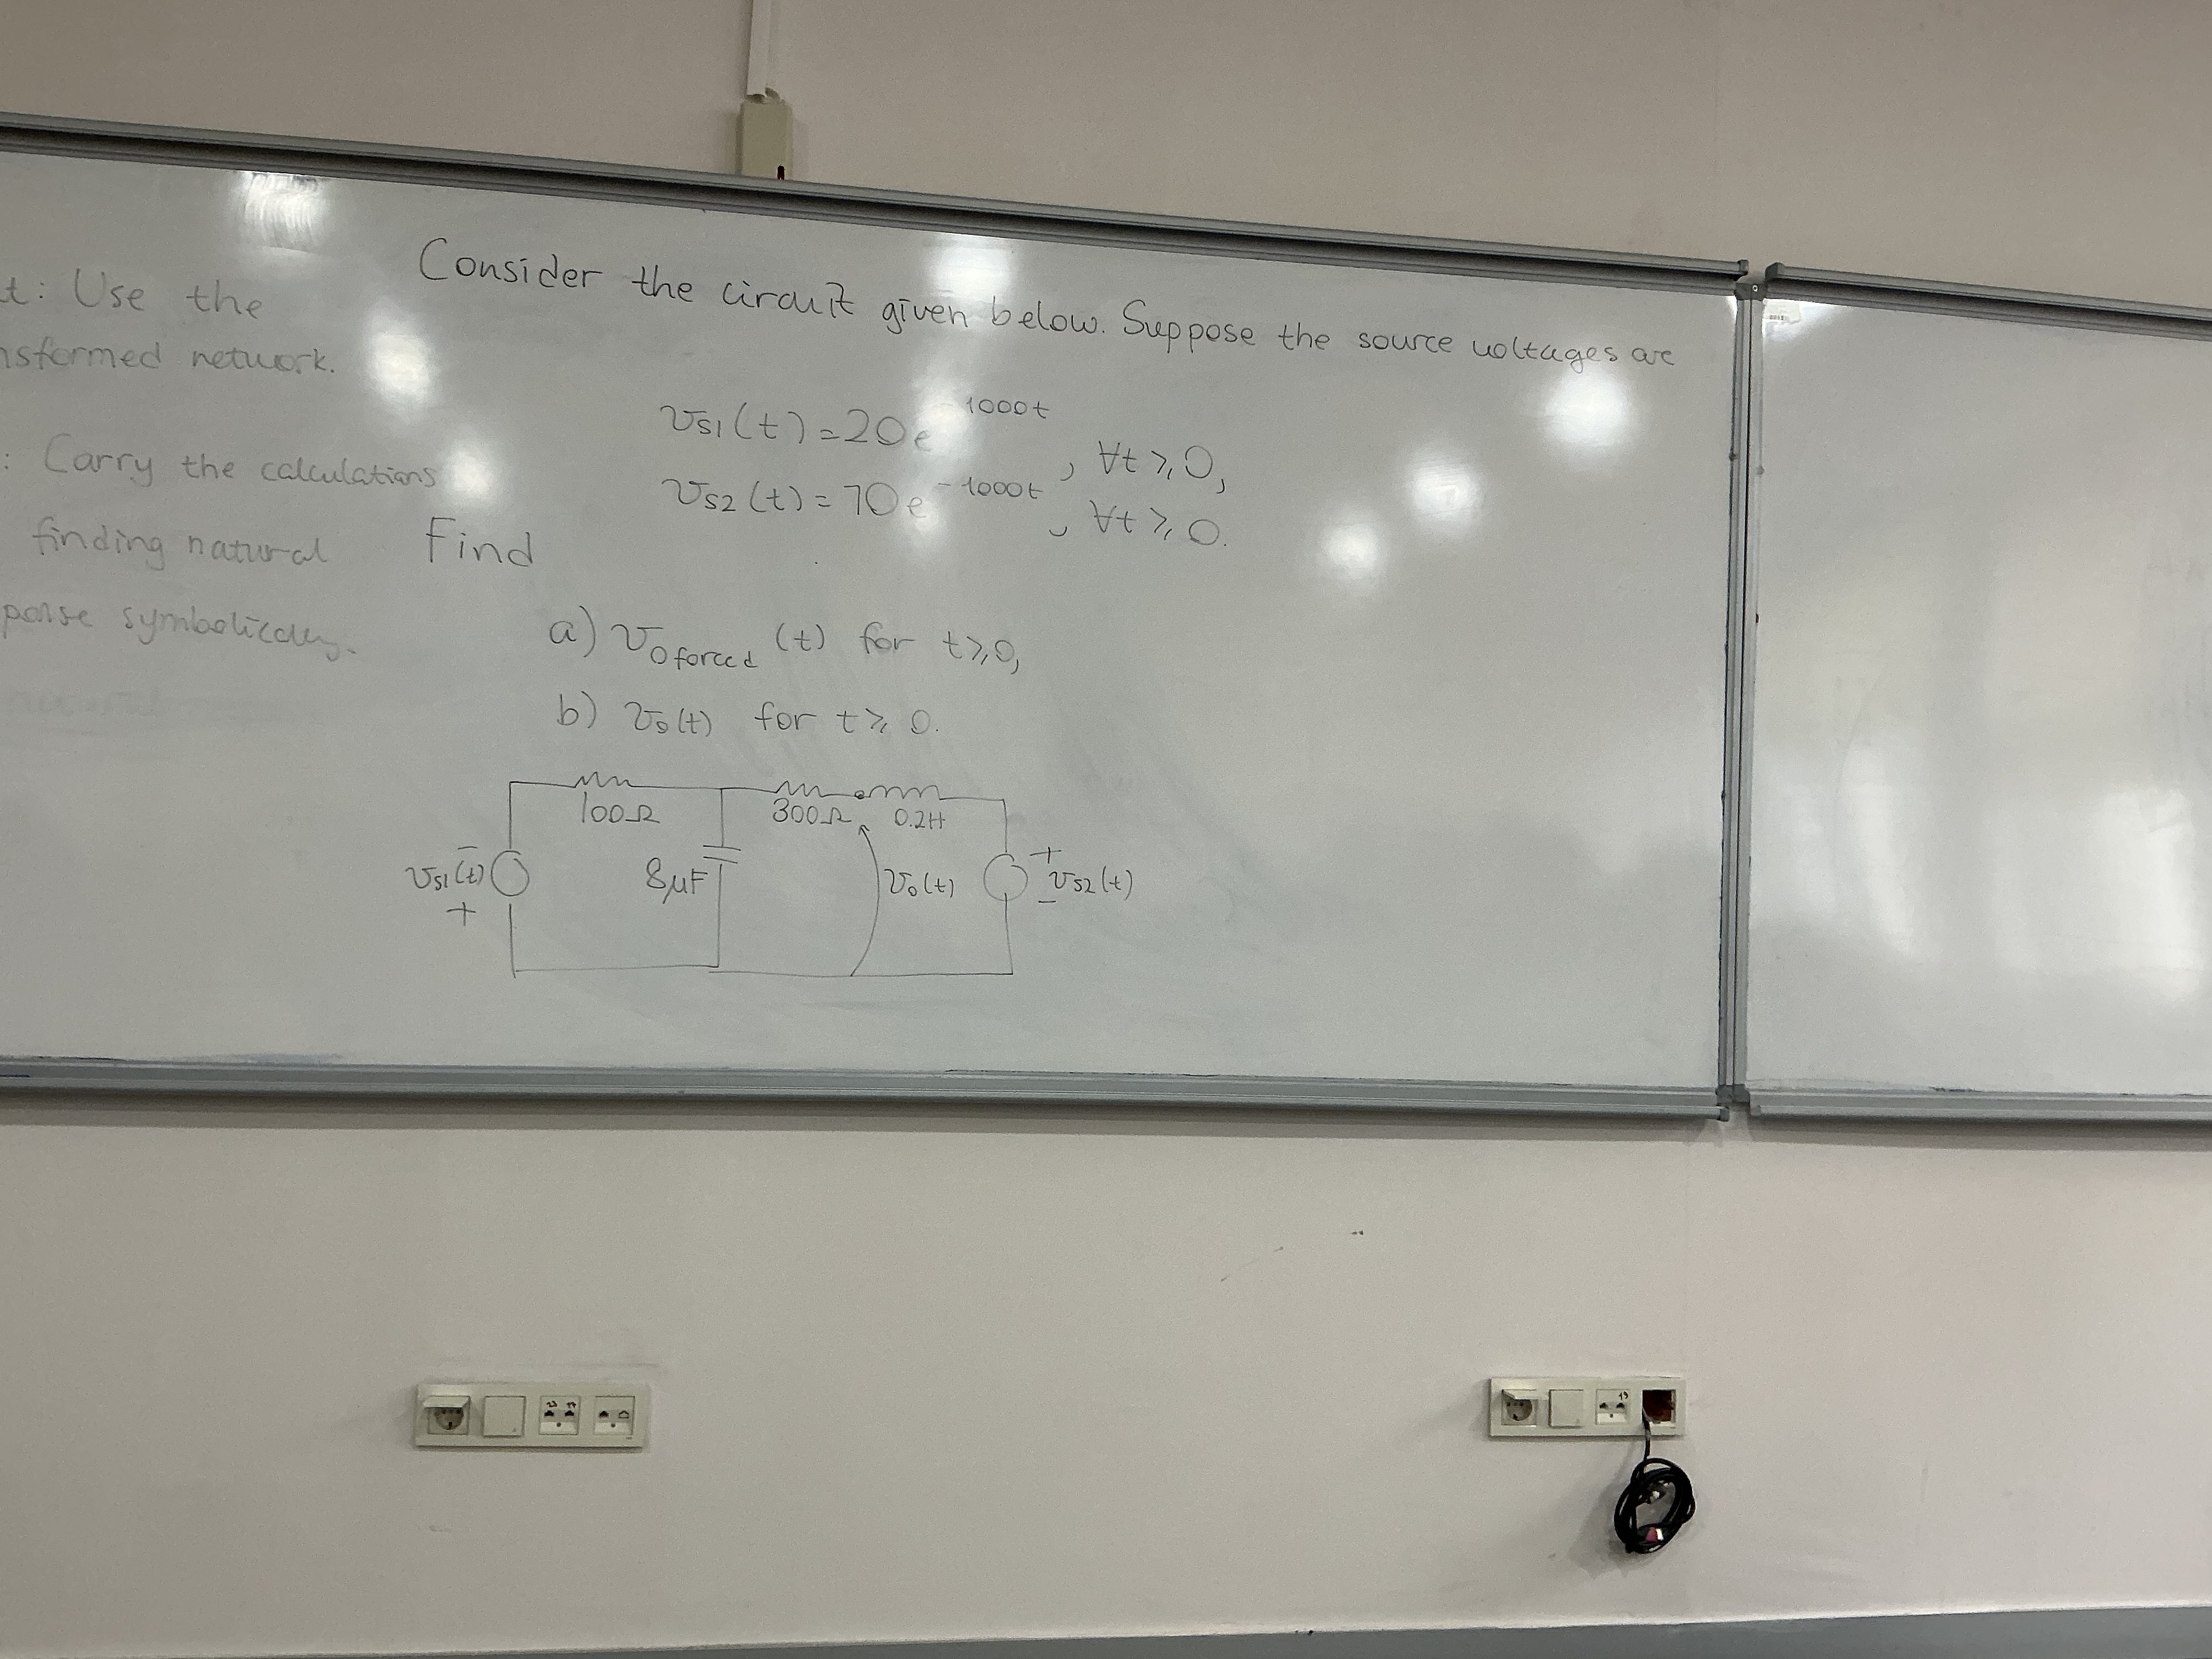 t: Use the
nsformed network.
: Carry the calculations
finding natural
ponse symbolically.
Consider the circuit given below. Suppose the source voltages are
vs1(t) = 20e^1000t, ∀t ≥ 0,
vs2(t) = 70e^-1000t, ∀t ≥ 0.
Find
a) vo forced (t) for t ≥ 0,
b) vo(t) for t ≥ 0.
100Ω 300Ω 0.2H
vs1(t) - + 8μF vo(t) + - vs2(t)